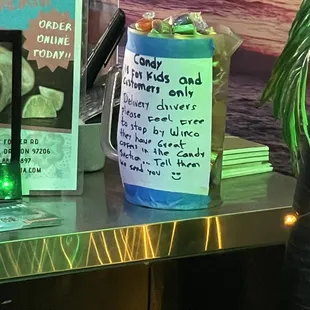 ORDER
ONLINE
TODAY!!
RD
97206
Candy
is for Kids and
Customers only
Delivery drivers
Please Feel Free
to stop by Winco
they have Great
in the Candy
Section... Tell them
we send you